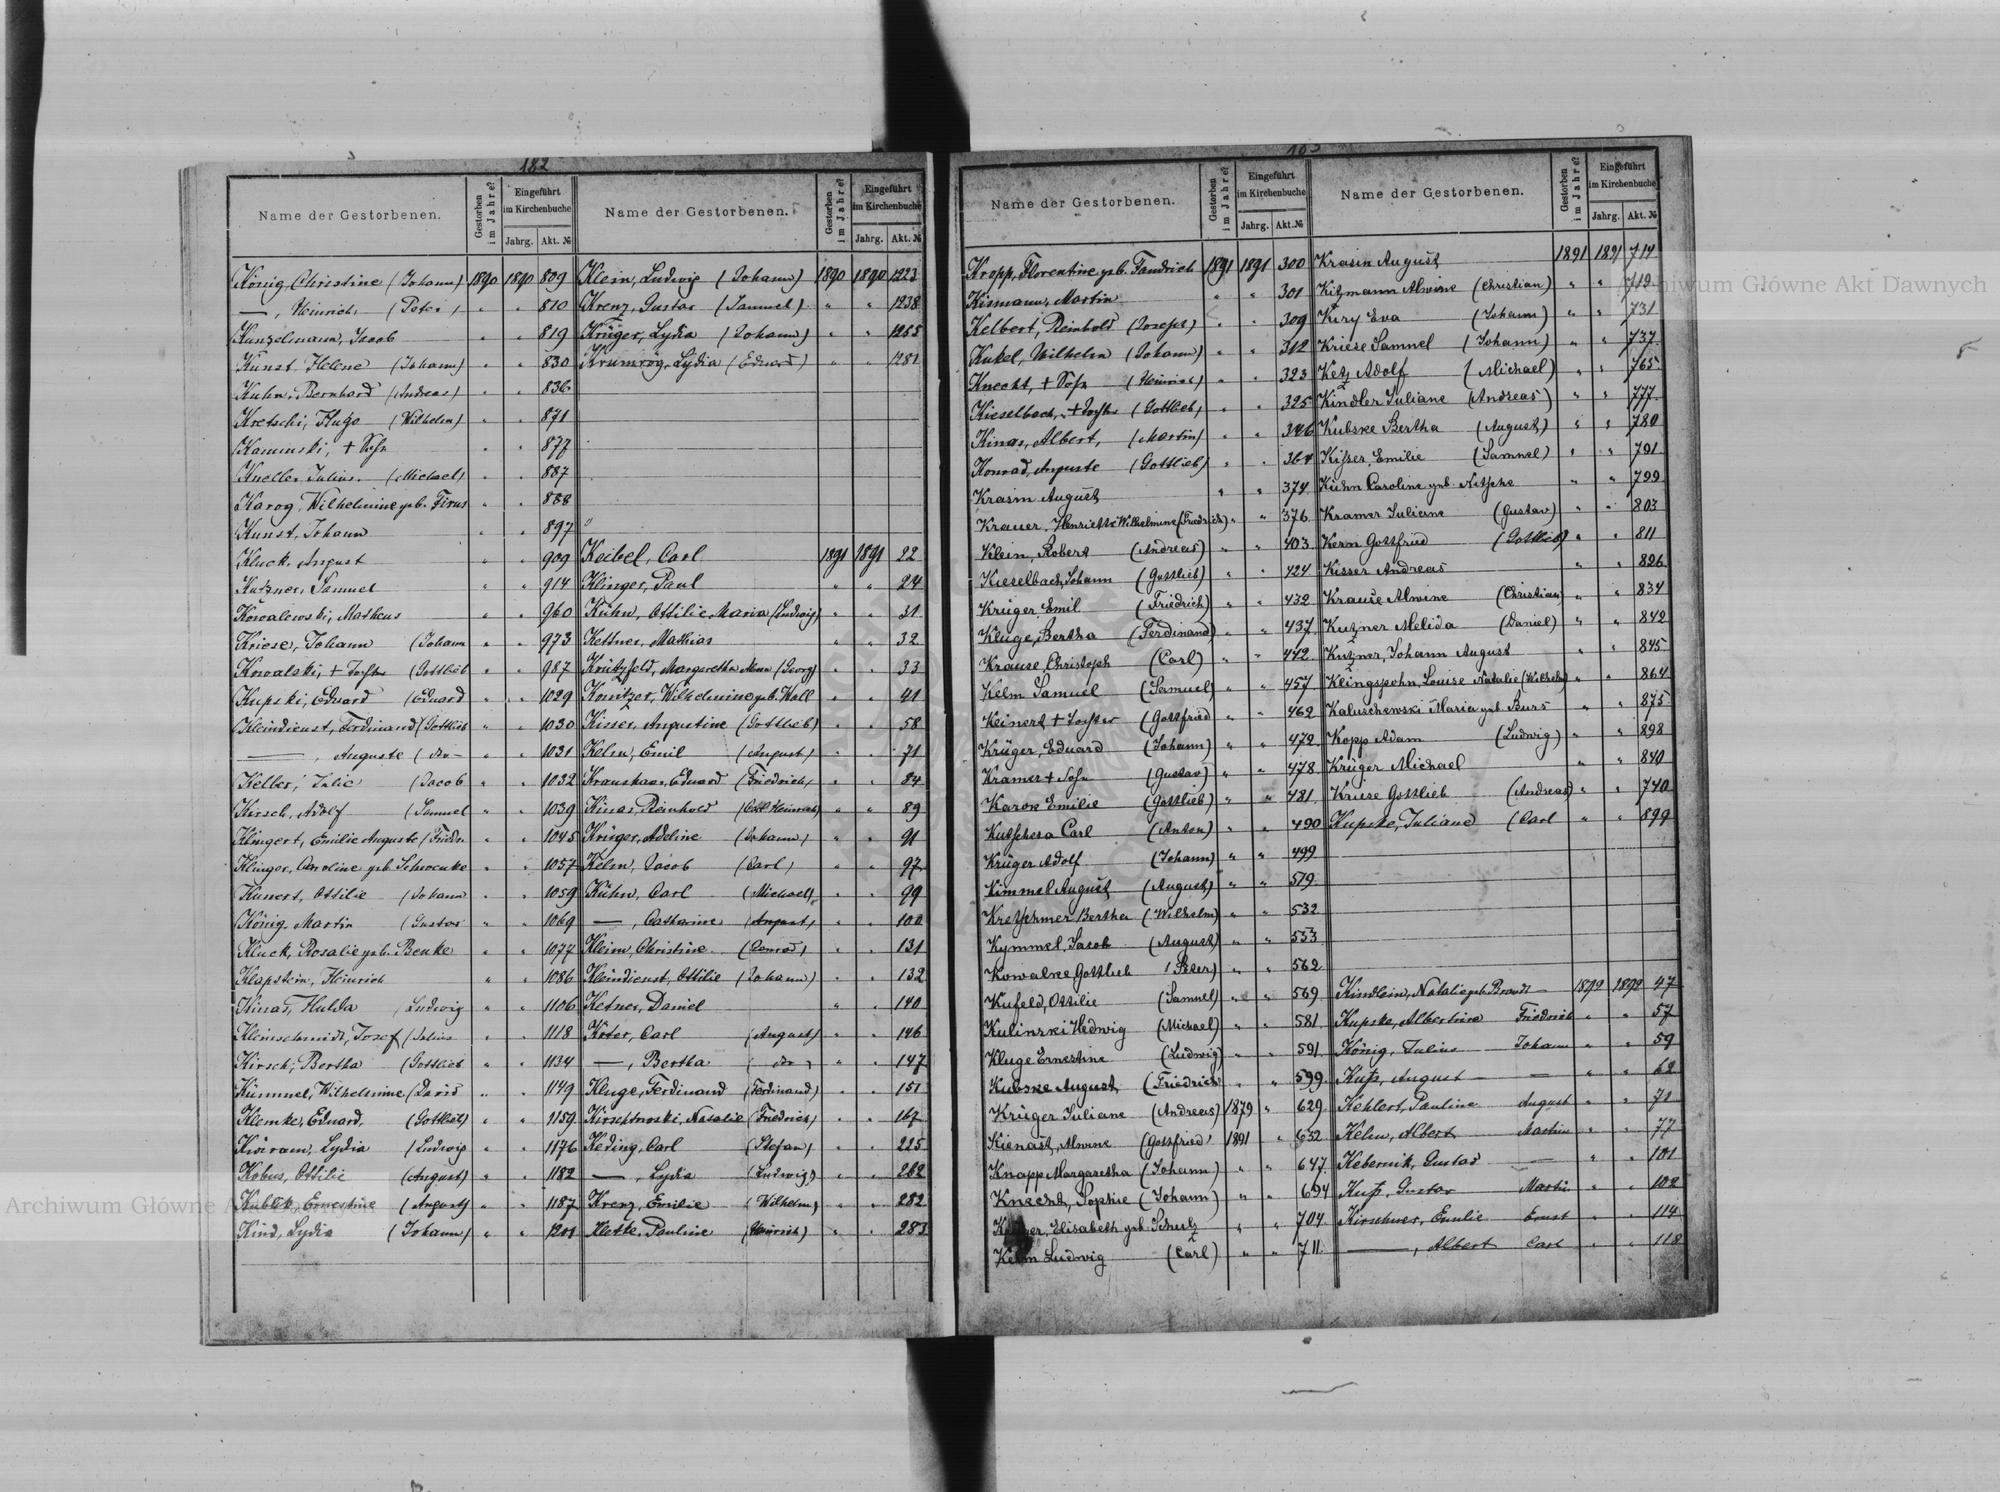 182
Name der Gestorbenen.
Gestorben im Jahre?
Eingeführt im Kirchenbuche
Jahrg. Akt. №
König Christine (Johann) 1890 1890 809
—, Heinrich (Peter) " " 810
Kunzelmann, Jacob " " 819
Kunst, Helene (Johann) " " 830
Kuhn, Bernhard (Andreas) " " 836
Kretschi, Hugo (Wilhelm) " " 871
Kaminski, + Sohn " " 877
Kneller Julius (Michael) " " 887
Karog, Wilhelmine geb. Firus " " 888
Kunst, Johann " " 897
Kluck, August " " 909
Kutzner, Samuel " " 914
Kowalewski, Matheus " " 960
Kriese, Johann (Johann " " 973
Kowalski, + Tochter (Gottlieb " " 987
Kupski, Eduard (Eduard " " 1029
Kleindienst, Ferdinand (Gottlieb " " 1030
—, Auguste (do— " " 1031
Keller, Julie (Jacob " " 1032
Kirsch, Adolf (Samuel " " 1039
Klingert, Emilie Auguste (Friedr " " 1045
Klinger, Caroline geb. Schroenke " " 1057
Kunert, Ottilie (Johann " " 1059
König, Martin (Gustav " " 1069
Kluck, Rosalie geb. Benke " " 1077
Klapstein, Heinrich " " 1086
Kinas, Hulda (Ludwig " " 1106
Kleinschmidt, Josef (Julius " " 1118
Kirsch, Bertha (Gottlieb " " 1134
Kümmel, Wilhelmine (David " " 1149
Klemke, Eduard, (Gottlieb) " " 1159
Kwiram, Lydia (Ludwig " " 1176
Kobus, Ottilie (August) " " 1182
Kublik, Ernestine (August) " " 1187
Kind, Lydia (Johann) " " 1201
Name der Gestorbenen.
Gestorben im Jahre?
Eingeführt im Kirchenbuche
Jahrg. Akt. №
Klein, Ludwig (Johann) 1890 1890 1223
Krenz, Gustav (Samuel) " " 1238
Krüger, Lydia (Johann) " " 1255
Krumrög, Lydia (Eduard) " " 1281
Keibel, Carl 1891 1891 22
Klinger, Paul " " 24
Kühn, Ottilie Maria (Ludwig) " " 31
Kettner, Mathias " " 32
Krützfeld, Margaretha Anna (Georg) " " 33
Konitzer, Wilhelmine geb. Woll " " 41
Kisser, Augustine (Gottlieb) " " 58
Kelm, Emil (August) " " 71
Kraushaar, Eduard (Friedrich) " " 84
Kinas, Reinhold (Carl Heinrich) " " 89
Krüger, Adeline (Johann) " " 91
Kelm, Jacob (Carl) " " 97
Kühn, Carl (Michael) " " 99
—, Catharine (August) " " 100
Kleim, Christine (Conrad) " " 131
Kleindienst, Ottilie (Johann) " " 132
Ketner, Daniel " " 140
Köter, Carl (August) " " 146
—, Bertha (do) " " 147
Kluge, Ferdinand (Ferdinand) " " 151
Kirschkowski, Natalie (Friedrich) " " 167
Keding, Carl (Stefan) " " 225
—, Lydia (Ludwig) " " 262
Krenz, Emilie (Wilhelm) " " 282
Kletke, Pauline (Heinrich) " " 283
Name der Gestorbenen.
Gestorben im Jahre?
Eingeführt im Kirchenbuche
Jahrg. Akt. №
Kropp, Florentine geb. Fandrich 1891 1891 300
Kismann, Martin " " 301
Kelbert, Reinhold (Joseph) " " 309
Kukel, Wilhelm (Johann) " " 312
Knecht, + Sohn (Heinrich) " " 323
Kieselbach, + Tochter (Gottlieb) " " 325
Kinas, Albert, (Martin) " " 346
Konrad, Auguste (Gottlieb) " " 364
Krasin August " " 374
Krauer, Henriette Wilhelmine (Friedrich) " " 376
Klein, Robert (Andreas) " " 403
Kieselbach, Johann (Gottlieb) " " 424
Krüger Emil (Friedrich) " " 432
Kluge, Bertha (Ferdinand) " " 437
Krause, Christoph (Carl) " " 442
Kelm Samuel (Samuel) " " 457
Keinert + Tochter (Gottfried " " 462
Krüger, Eduard (Johann) " " 472
Kramer + Sohn (Gustav) " " 478
Karow Emilie (Gottlieb) " " 481
Kutschera Carl (Anton) " " 490
Krüger Adolf (Johann) " " 499
Kimmel August (August) " " 519
Kretschmer Bertha (Wilhelm) " " 532
Kymmel, Jacob (August) " " 553
Kowalke Gottlieb (Peter) " " 562
Kufeld, Ottilie (Samuel) " " 569
Kulinski Hedwig (Michael) " " 581
Kluge Ernestine (Ludwig) " " 591
Kubske August (Friedrich " " 599
Krüger Juliane (Andreas) 1879 " 629
Kienast, Alwine (Gottfried) 1891 " 632
Knapp Margaretha (Johann) " " 647
Knecht, Sophie (Johann) " " 694
Elisabeth geb. Schulz " " 704
Kelm Ludwig (Carl) " " 711
Name der Gestorbenen.
Gestorben im Jahre?
Eingeführt im Kirchenbuche
Jahrg. Akt. №
Krasin August 1891 1891 714
Kitzmann Alwine (Christian) " " 719
Kiry Eva (Johann) " " 731
Kriese Samuel (Johann) " " 737
Ketz Adolf (Michael) " " 765
Kindler Juliane (Andreas) " " 777
Kubske Bertha (August) " " 780
Kisser, Emilie (Samuel) " " 791
Kühn Caroline geb. Nitschke " " 799
Kramer Juliane (Gustav) " " 803
Kern Gottfried (Gottlieb) " " 811
Kisser Andreas " " 826
Krause Alwine (Christian) " " 834
Kutzner Melida (Daniel) " " 842
Kutzner, Johann August " " 845
Klingspohn, Louise Natalie (Wilhelm) " " 864
Kaluschewski Maria geb. Burs " " 875
Kopp Adam (Ludwig) " " 898
Krüger Michael " " 840
Kriese Gottlieb (Andreas) " " 740
Kupske, Juliane (Carl " " 899
Kindlein, Natalie geb. Brandt 1892 1892 47
Kupske, Albertine Friedrich " " 57
König, Julius Johann " " 59
Kuß, August — " " 62
Kehlert, Pauline August " " 71
Kelm, Albert Martin " " 77
Kebernik, Gustav — " " 101
Kuß, Gustav Martin " " 102
Kirschner, Emilie Ernst " " 114
—, Albert Carl " " 118
Archiwum Główne Akt Dawnych
Archiwum Główne Akt Dawnych